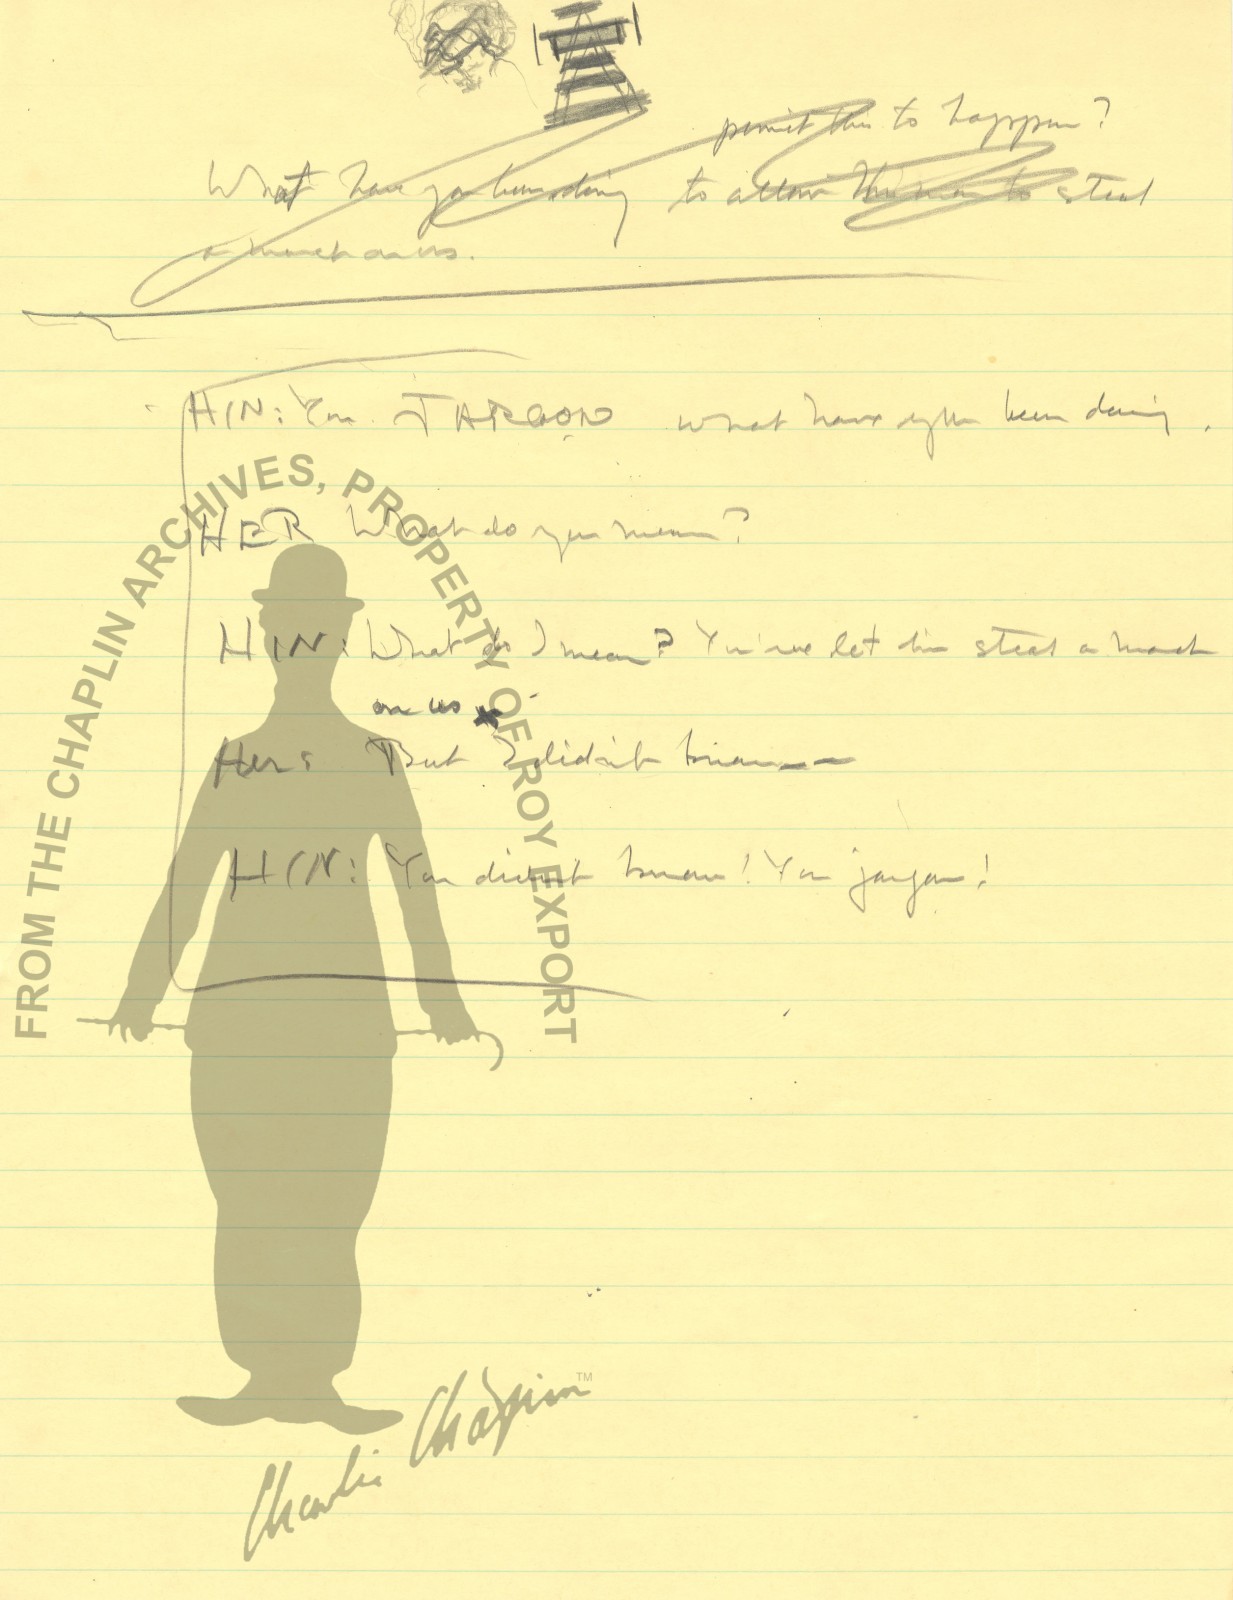 permit this to happen?
What have you been doing to allow this man to steal
a march on us.
HIN: You JARGON what have you been doing.
HER What do you mean?
HIN: What do I mean? You've let him steal a march
on us
Her: But I didn't know --
HIN: You didn't know! You jargon!
FROM THE CHAPLIN ARCHIVES, PROPERTY OF ROY EXPORT
Charlie Chaplin TM